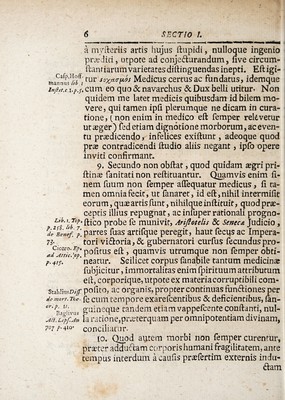 6 SECTIO I.
à mysteriis artis hujus stupidi, nulloque ingenio
præditi, utpote ad conjecturandum, sive circum-
stantiarum varietates distinguendas inepti. Est igi-
tur Medicus certus ac fundatus, idemque
cum eo quo & navarchus & Dux belli utitur. Non
quidem me later medicis quibusdam id bilem mo-
vere, qui tamen ipsi plerumque ne dicam in cura-
tione, (non enim in medico est semper relevetur
ut æger) sed etiam dignotione morborum, ac even-
tu prædicendo, infelices existunt, adeoque quod
præ contradicendi studio aliis negant, ipso opere
inviti confirmant.
9. Secundo non obstat, quod quidam ægri pri-
stinæ sanitati non restituantur. Quamvis enim fi-
nem suum non semper assequatur medicus, si ta-
men omnia fecit, ut sanaret, id est, nihil intermisit
eorum, quæ artis sunt, nihilque instituit, quod præ-
ceptis illius repugnat, ac insuper rationali progno-
stico probe se munivit, Aristotelis & Seneca judicio,
partes suas artisque peregit, haut secus ac Impera-
tori victoria, & gubernatori cursus secundus pro-
positus est, quamvis utrumque non semper obti-
neatur. Scilicet corpus sanabile tantum medicinæ
subjicitur, immortalitas enim spirituum attributum
est, corporique, utpote ex materia corruptibili com-
posito, ac organis, propter continuas functiones per
se cum tempore exarescentibus & deficientibus, san-
guineque tandem etiam vappescente constanti, nul-
la ratione, præterquam per omnipotentiam divinam,
conciliatur.
10. Quod autem morbi non semper curentur,
præter adductam corporis humani fragilitatem, ante
tempus interdum à causis præsertim externis indu-
ctam
Casp. Hoff-
mannus lib. 1.
Instit. c. 2. p. 5.
Lib. 1. Top.
p. 215. lib. 7.
de Benef. p.
73.
Cicero. Ep.
ad Attic.
p. 415.
Stahlim Diss.
de mort. The-
or. p. 11.
Baglivus
707 p. 410